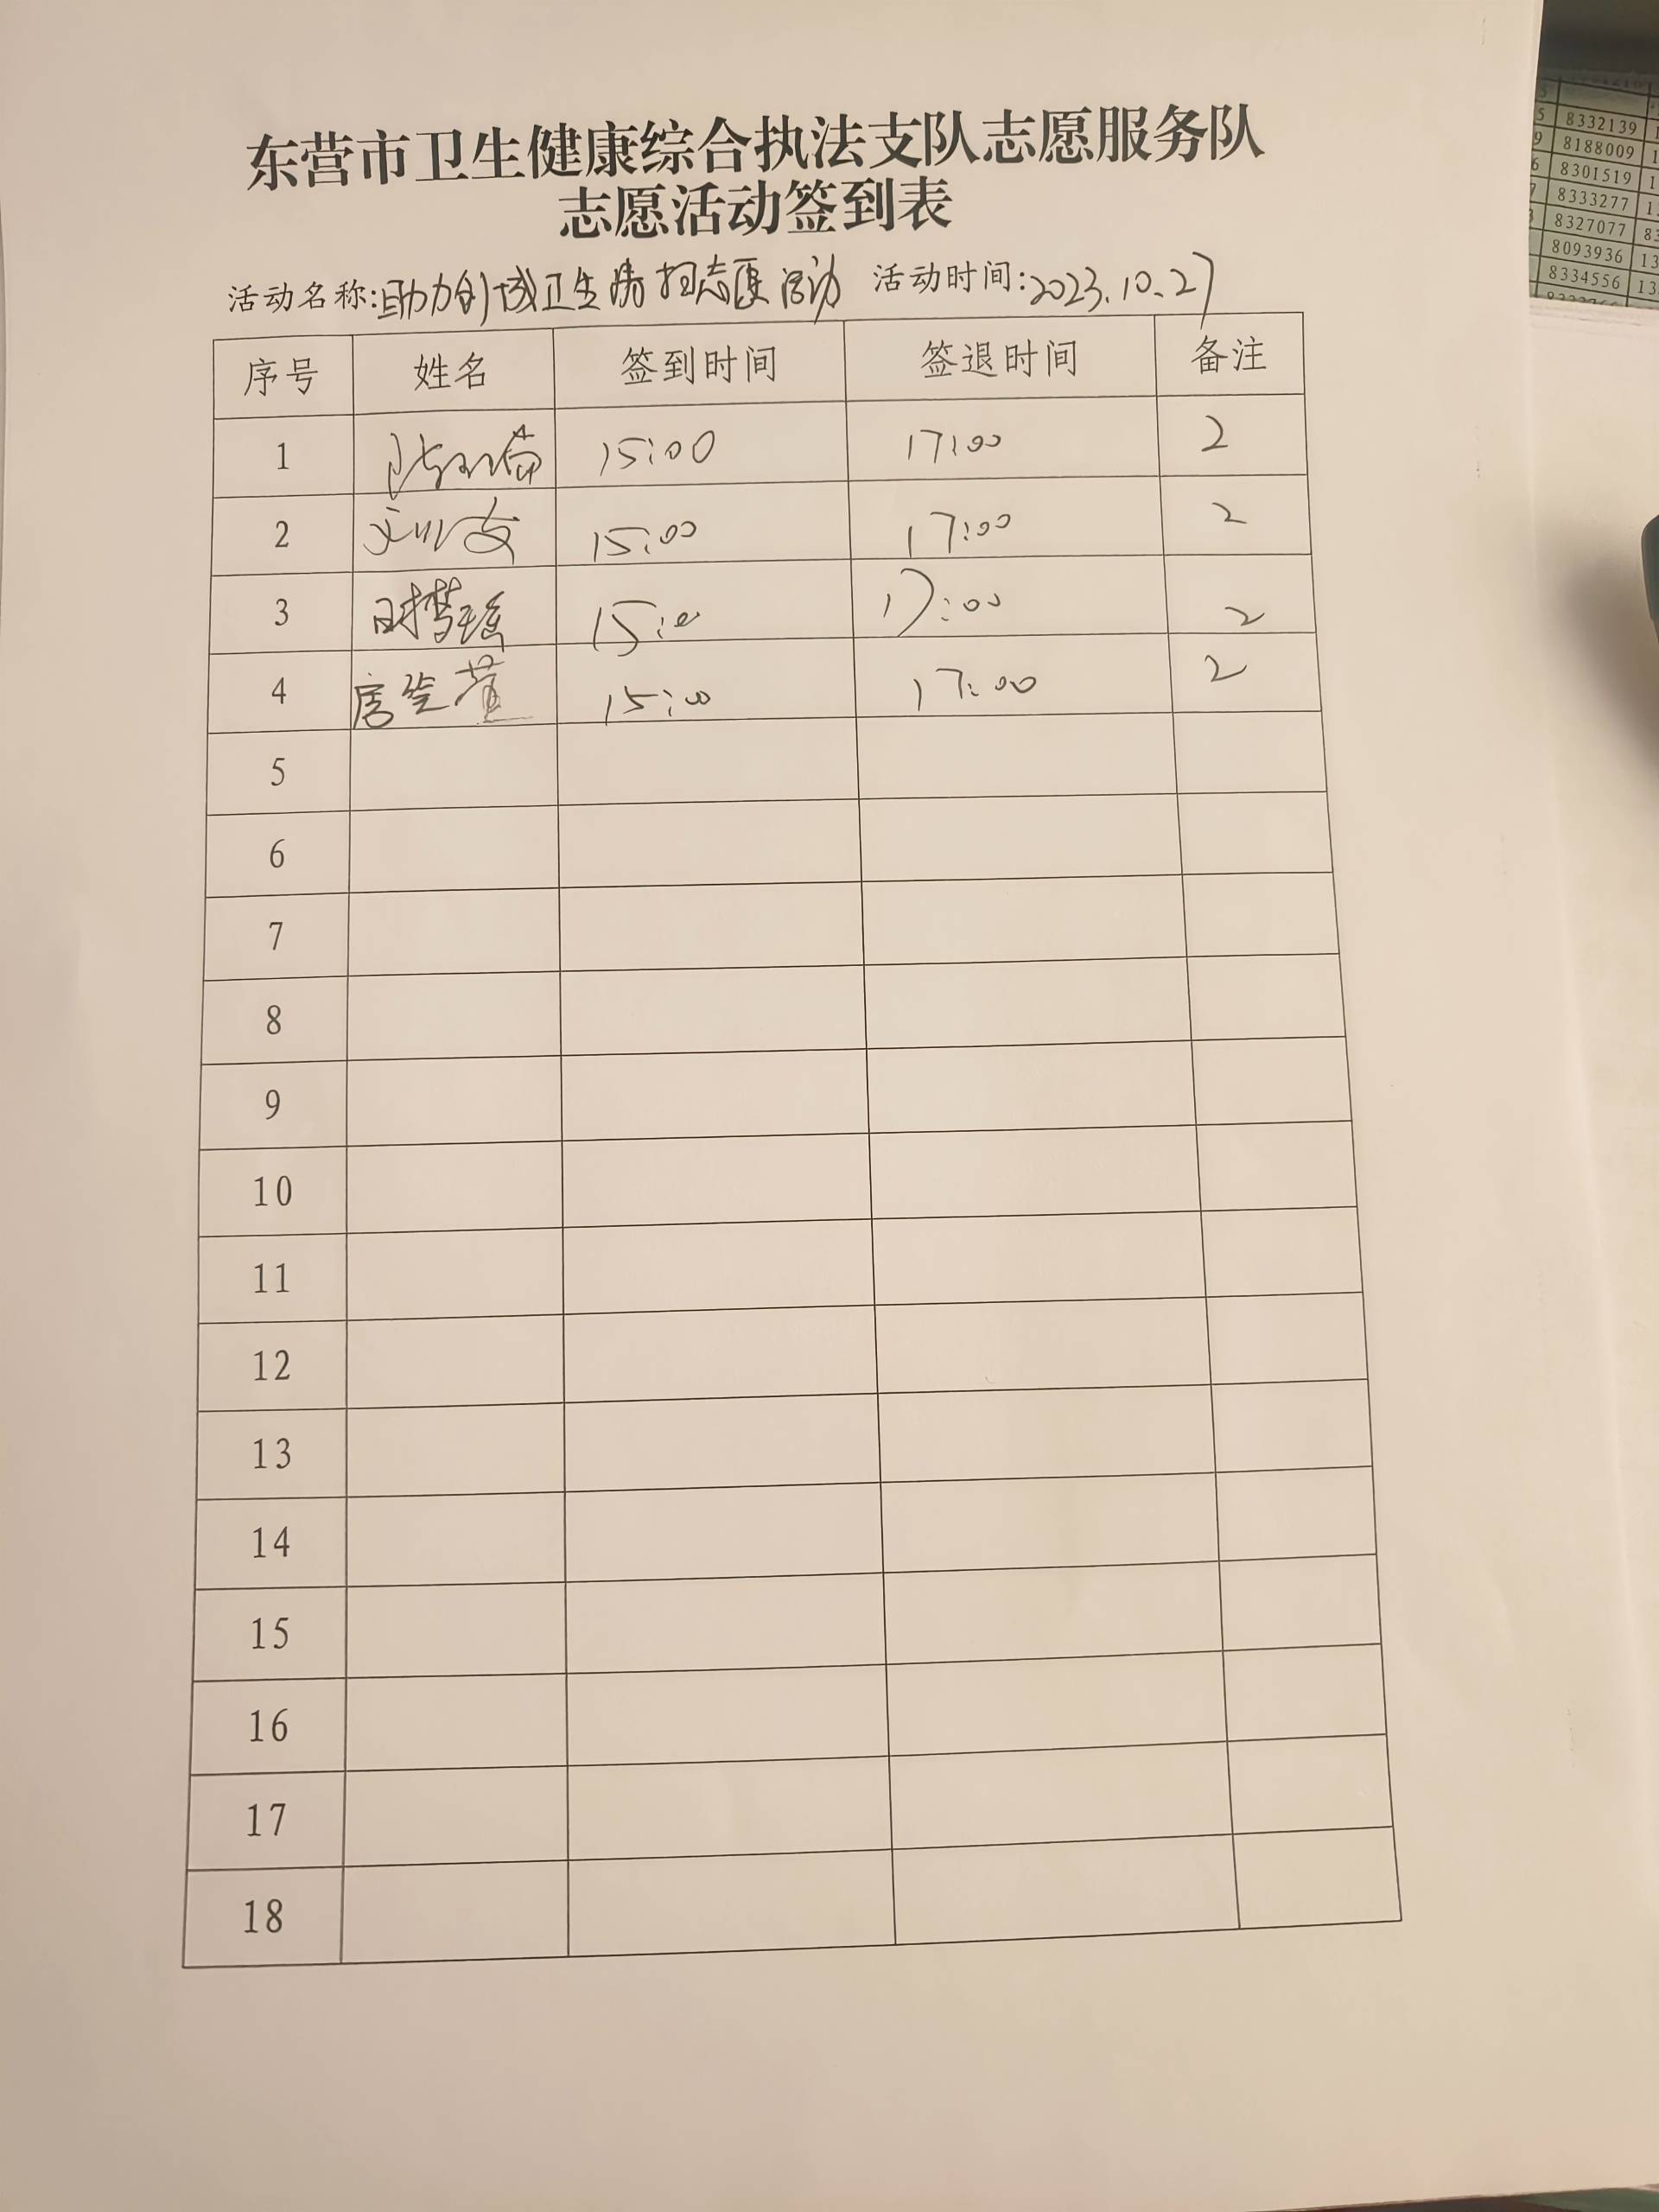 东营市卫生健康综合执法支队志愿服务队
志愿活动签到表
活动名称:助力创城卫生清扫志愿活动 活动时间:2023.10.27
序号 姓名 签到时间 签退时间 备注
1 15:00 17:00 2
2 15:00 17:00 2
3 时梦瑶 15:00 17:00 2
4 15:00 17:00 2
5
6
7
8
9
10
11
12
13
14
15
16
17
18
8332139
8188009
8301519
8333277
8327077
8093936
8334556